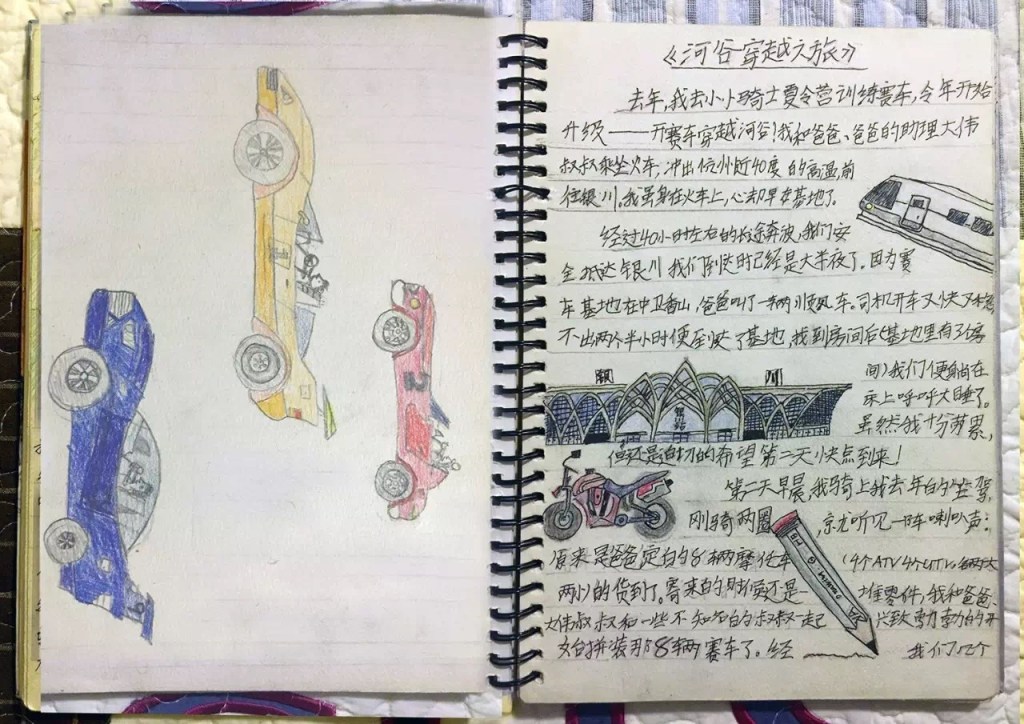 《河谷穿越之旅》
去年,我去小小骑士夏令营训练赛车,今年开始
升级——开赛车穿越河谷!我和爸爸、爸爸的助理大伟
叔叔乘坐火车,冲出杭州近40度的高温,前
往银川。我虽身在火车上,心却早在基地了。
经过40小时左右的长途奔波,我们安
全抵达银川 我们到达时已经是大半夜了。因为赛
车基地在中卫香山,爸爸叫了一辆顺风车。司机开车又快又稳
不出两个半小时便到达了基地,找到房间后(基地里有了房
间)我们便躺在
床上呼呼大睡了。
虽然我十分劳累,
银川站
但还是迫切的希望第二天快点到来!
第二天早晨,我骑上我去年的坐驾,
刚骑两圈,就听见一阵喇叭声:
原来是爸爸定的8辆摩托车(4个ATV 4个UTV,
两小的货到了。寄来的时候还是一堆零件,我和爸爸、
大伟叔叔和一些不知名的叔叔一起兴致勃勃的开
始拼装那8辆赛车了。经 我们几个